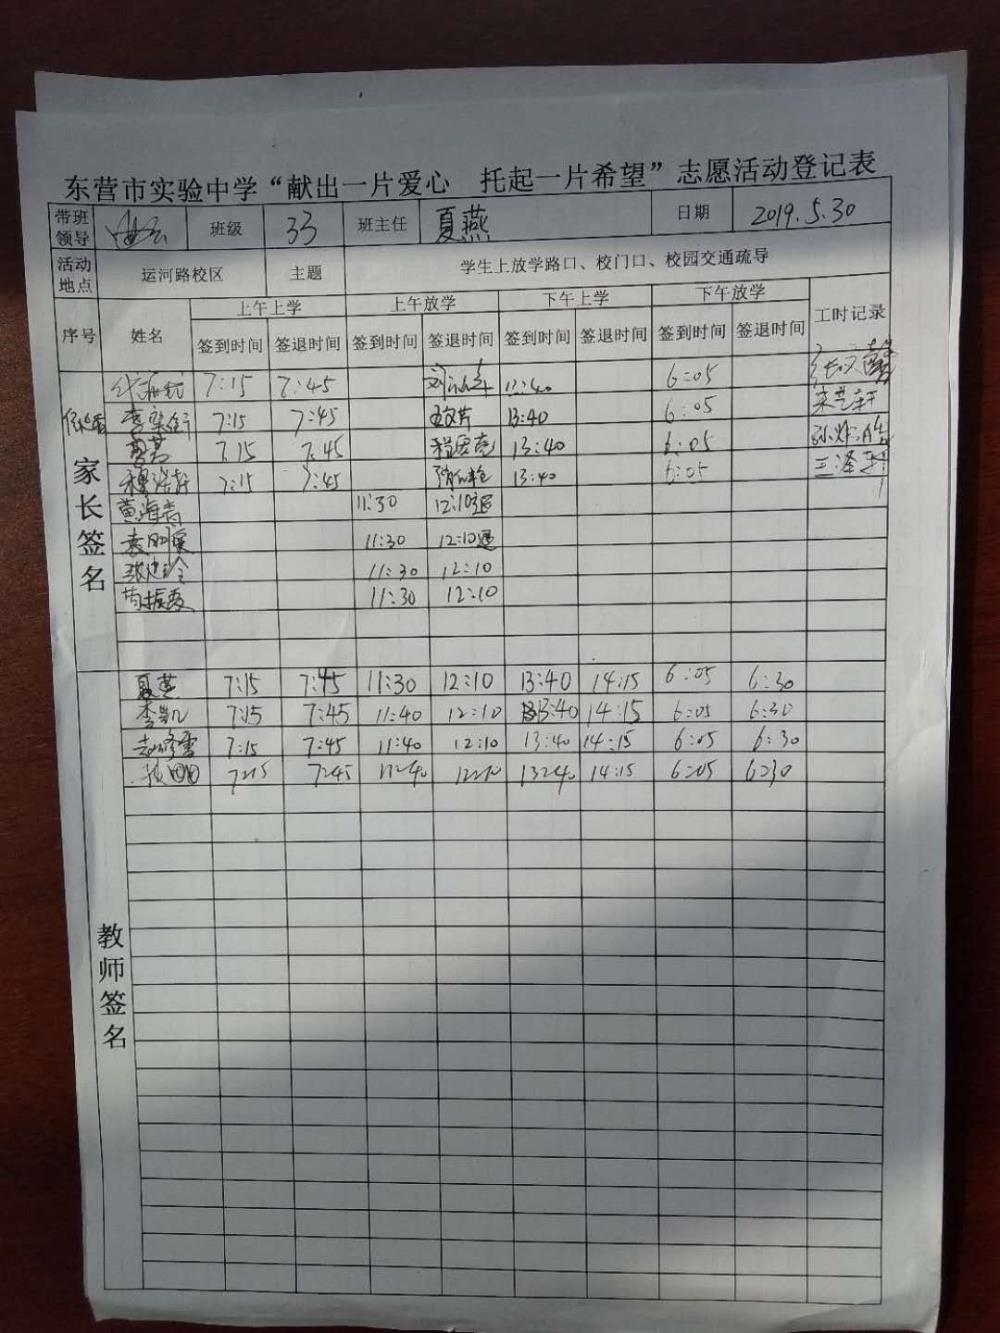 东营市实验中学“献出一片爱心 托起一片希望”志愿活动登记表
带班领导 班级 33 班主任 夏燕 日期 2019.5.30
活动地点 运河路校区 主题 学生上放学路口、校门口、校园交通疏导
序号 姓名 上午上学 上午放学 下午上学 下午放学 工时记录
签到时间 签退时间 签到时间 签退时间 签到时间 签退时间 签到时间 签退时间
家长签名
7:15 7:45 6:05
7:15 7:45 13:40 6:05
7:15 7:45 13:40 6:05
7:15 7:45 13:40 6:05
黄海青 11:30 12:10
11:30 12:10
11:30 12:10
11:30 12:10
教师签名
夏燕 7:15 7:45 11:30 12:10 13:40 14:15 6:05 6:30
李凯 7:15 7:45 11:40 12:10 13:40 14:15 6:05 6:30
7:15 7:45 11:40 12:10 13:40 14:15 6:05 6:30
7:15 7:45 11:40 12:10 13:40 14:15 6:05 6:30